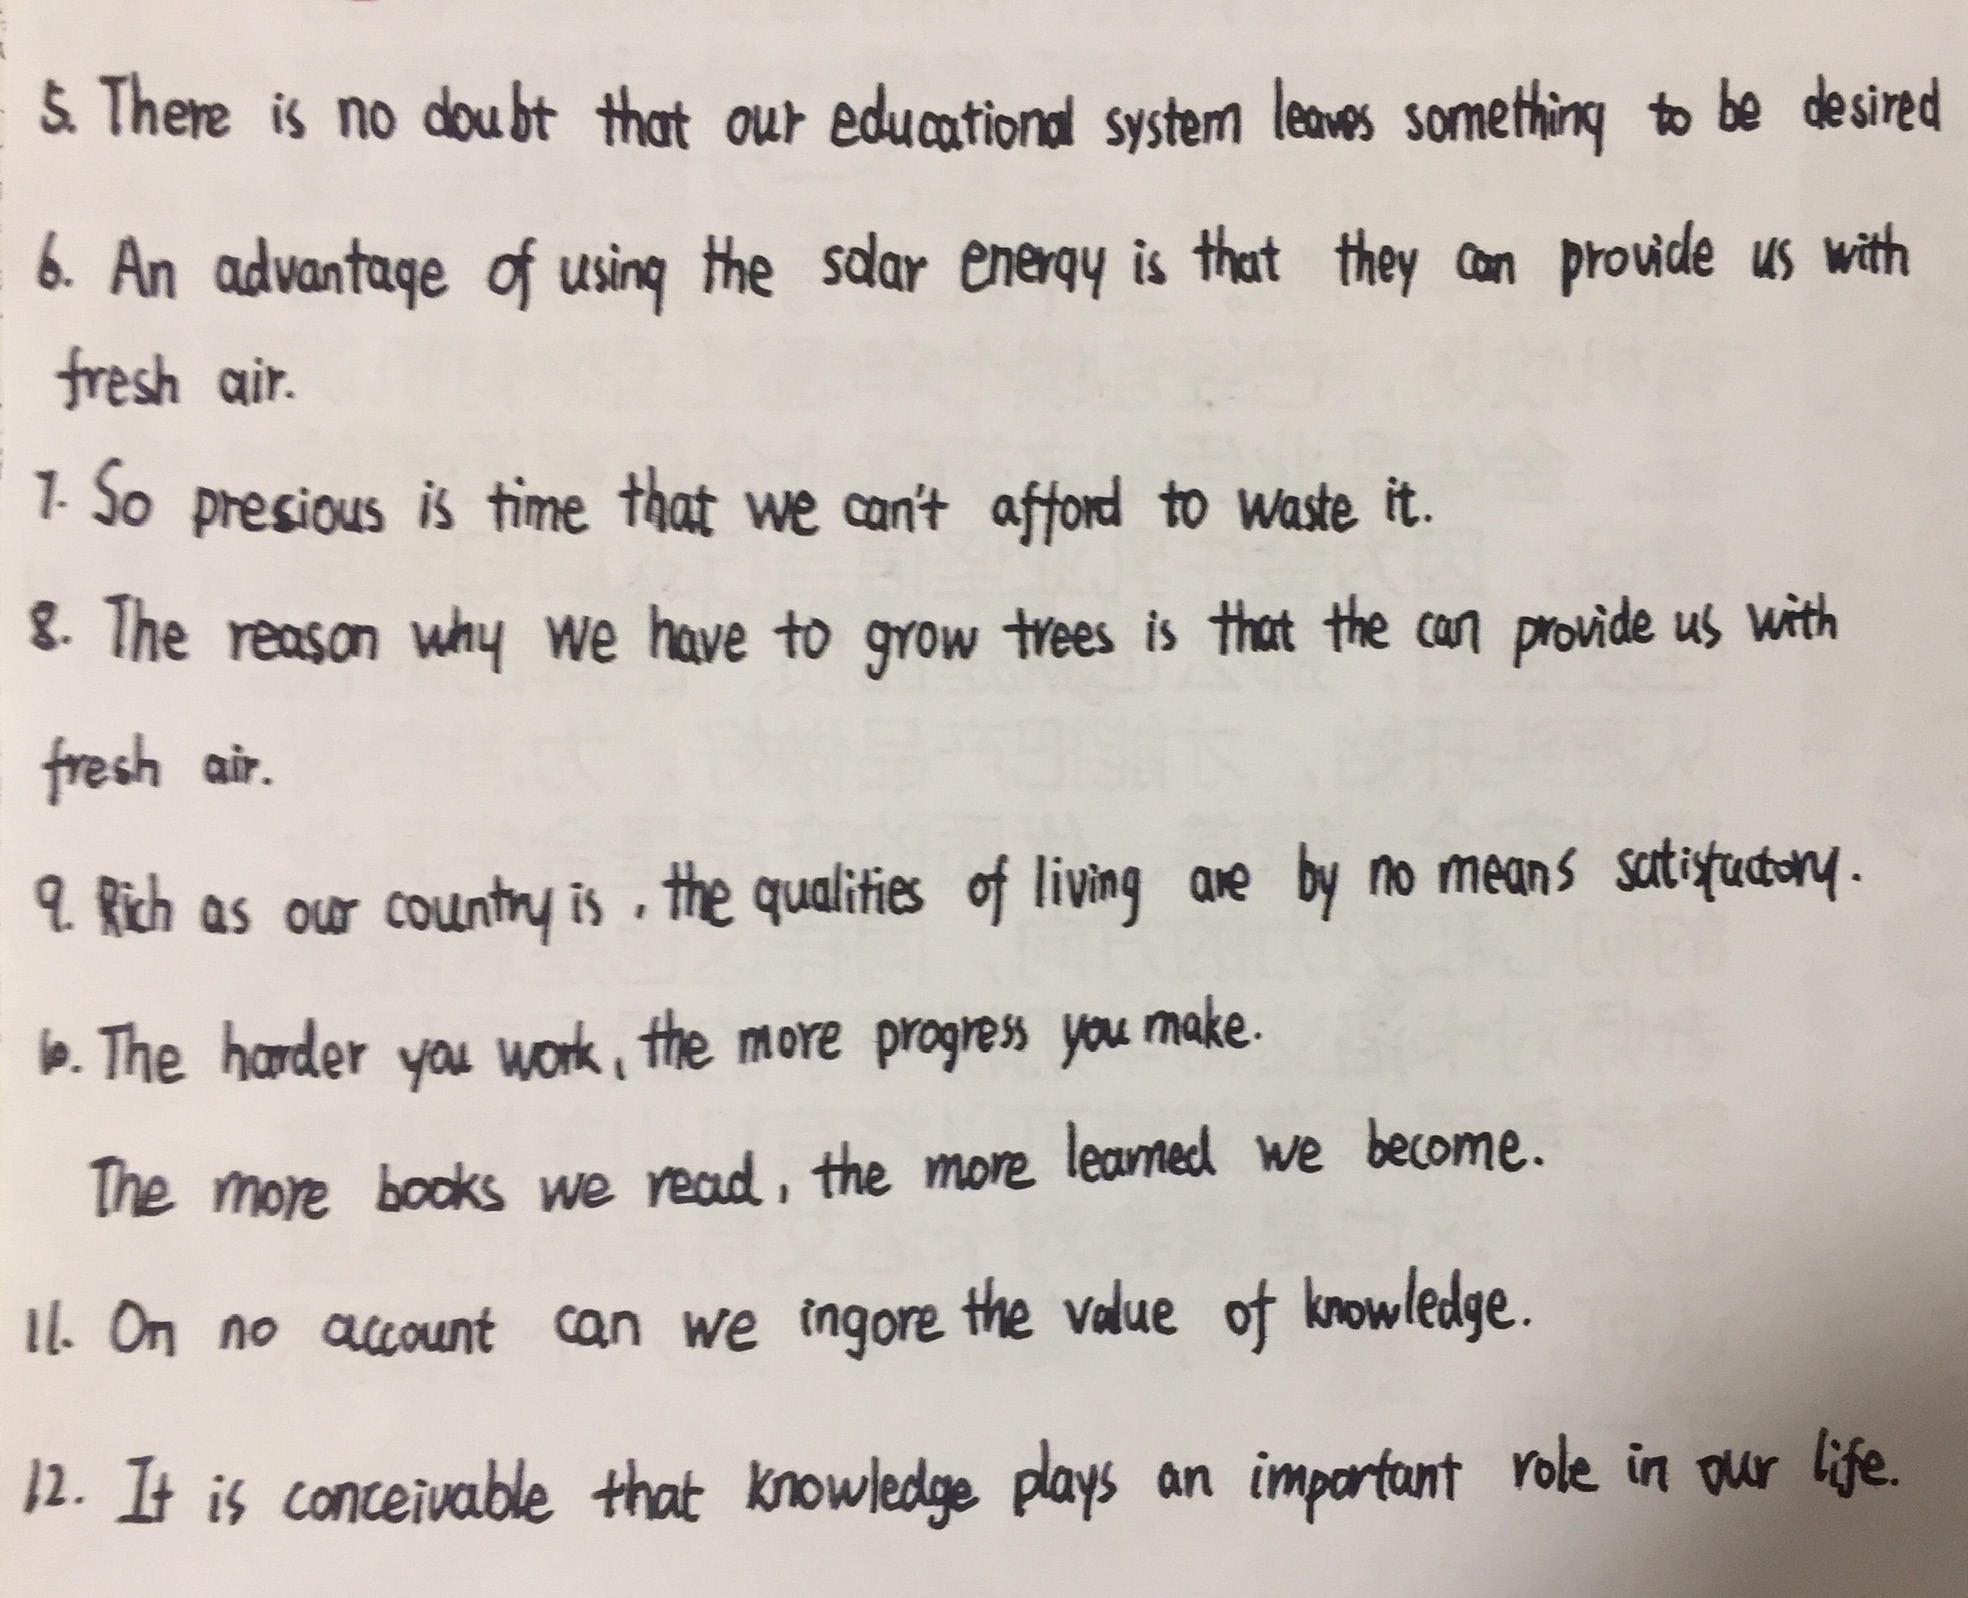 5. There is no doubt that our educational system leaves something to be desired
6. An advantage of using the solar energy is that they can provide us with
fresh air.
7. So presious is time that we can't afford to waste it.
8. The reason why we have to grow trees is that the can provide us with
fresh air.
9. Rich as our country is, the qualities of living are by no means satisfactory.
10. The harder you work, the more progress you make.
The more books we read, the more learned we become.
11. On no account can we ingore the value of knowledge.
12. It is conceivable that knowledge plays an important role in our life.